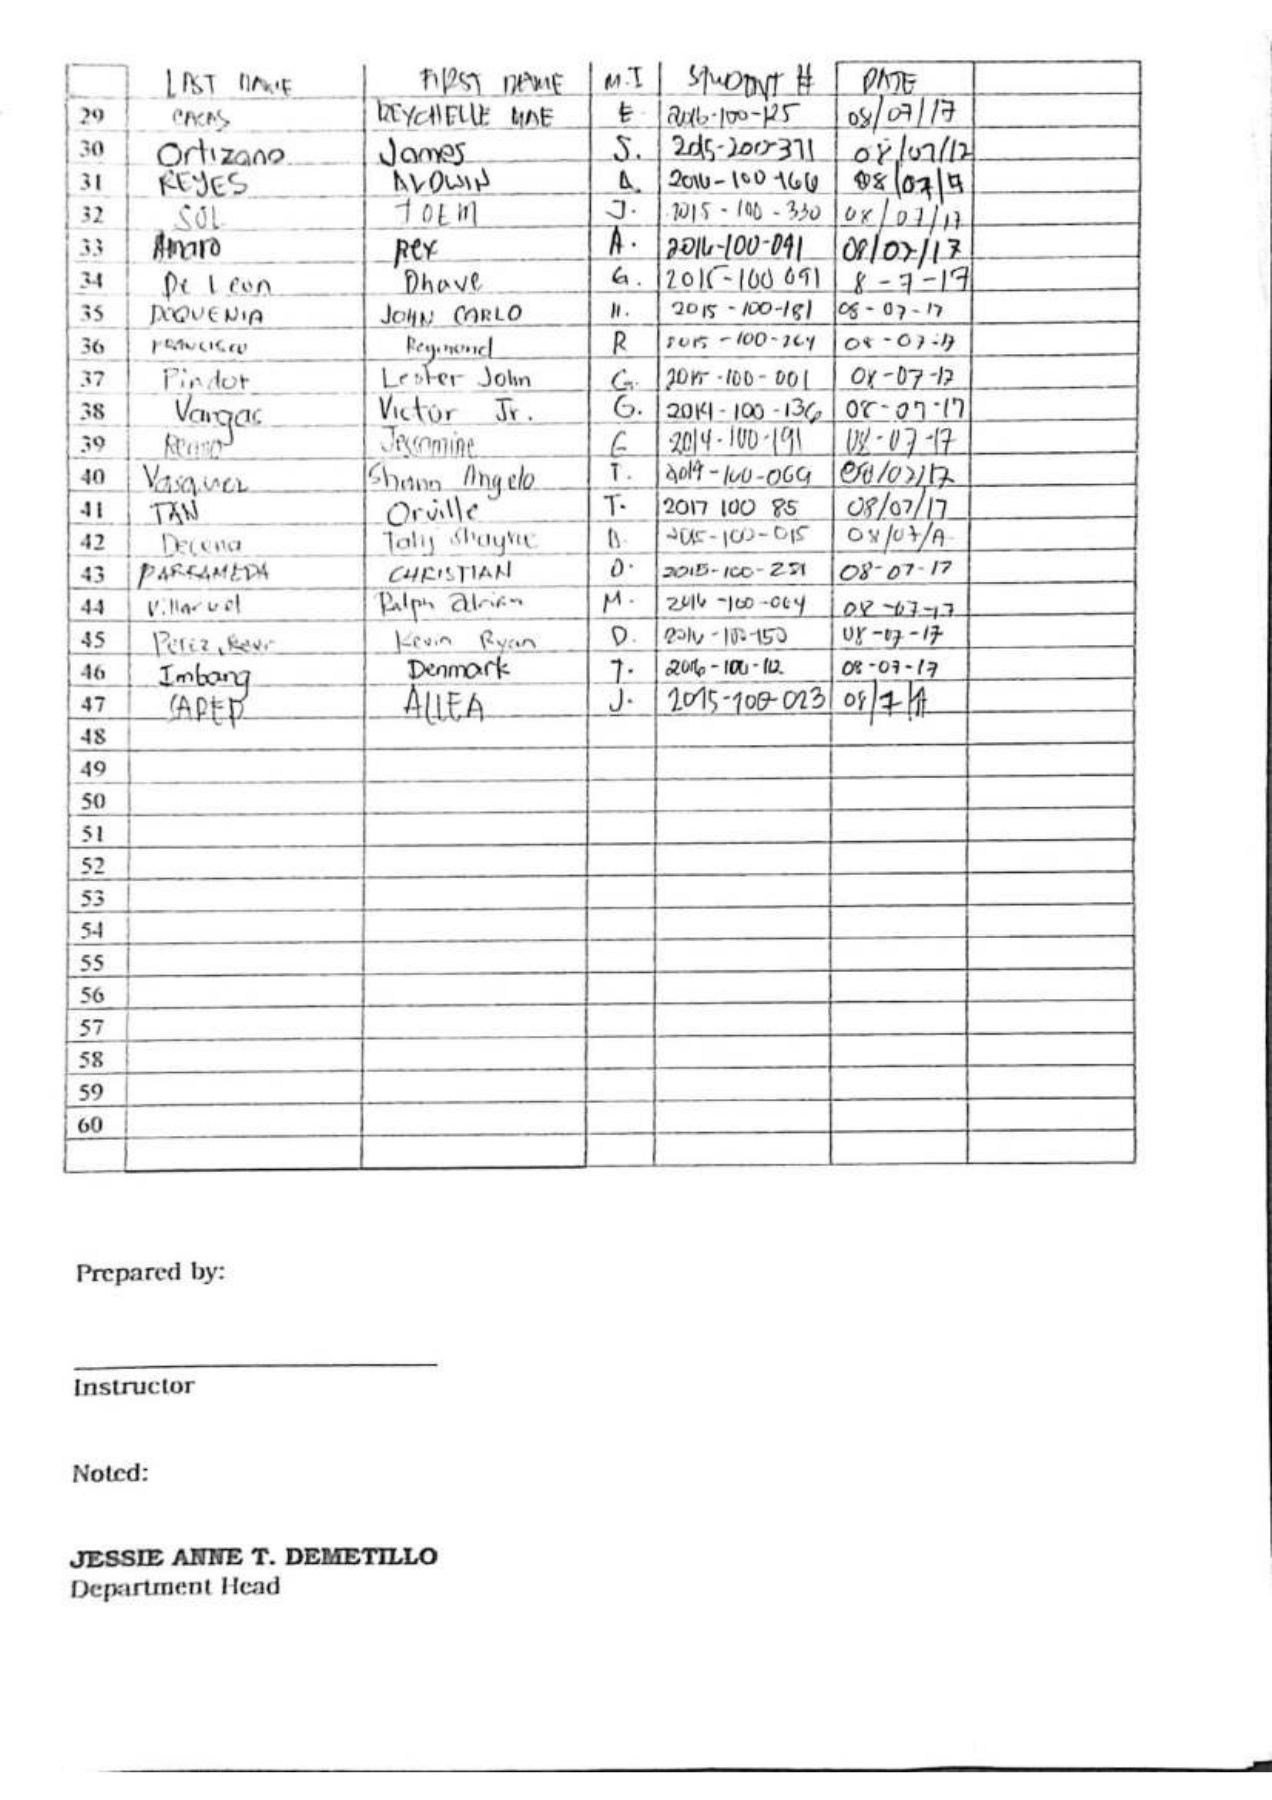 LAST NAME FIRST NAME M.I STUDENT # DATE
29 CACAS REYCHELLE MAE E 2016-100-125 08/07/17
30 Ortizano James S. 08/07/17
31 REYES A. 2016-100-166 08/07/17
32 SOL JOEM J. 2015-100-330 08/07/17
33 Amaro Rex A. 2016-100-091 08/07/17
34 De Leon Dhave G. 2015-100 091 8-7-17
35 DOQUENIA JOHN CARLO H. 2015-100-181 08-07-17
36 FRANCISCO Reymond R 2015-100-264 08-07-17
37 Pindot Lester John G. 2015-100-001 08-07-17
38 Vargas Victor Jr. G. 2014-100-136 08-07-17
39 Jessamine 2014-100-191 08-07-17
40 Vasquez Shann Angelo T. 08/07/17
41 TAN Orville T. 2017 100 85 08/07/17
42 Decena Shayne 2015-100-015 08/07/17
43 CHRISTIAN D. 2015-100-251 08-07-17
44 Villaruel Ralph Adrian M. 2016-100-064 08-07-17
45 Perez, Kevin Ryan D. 2016-100-150 08-07-17
46 Imbang Denmark J. 2016-100-112 08-07-17
47 ALLEA J. 2015-100-023 08/7/17
48
49
50
51
52
53
54
55
56
57
58
59
60
Prepared by:
Instructor
Noted:
JESSIE ANNE T. DEMETILLO
Department Head